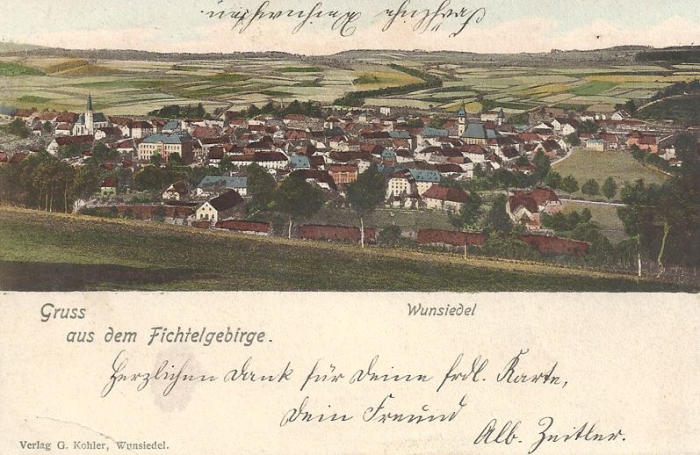 Gruss
aus dem Fichtelgebirge.
Wunsiedel
Herzlichen Dank für Deine frdl. Karte,
Dein Freund
Alb. Zeitler.
Verlag G. Kohler, Wunsiedel.